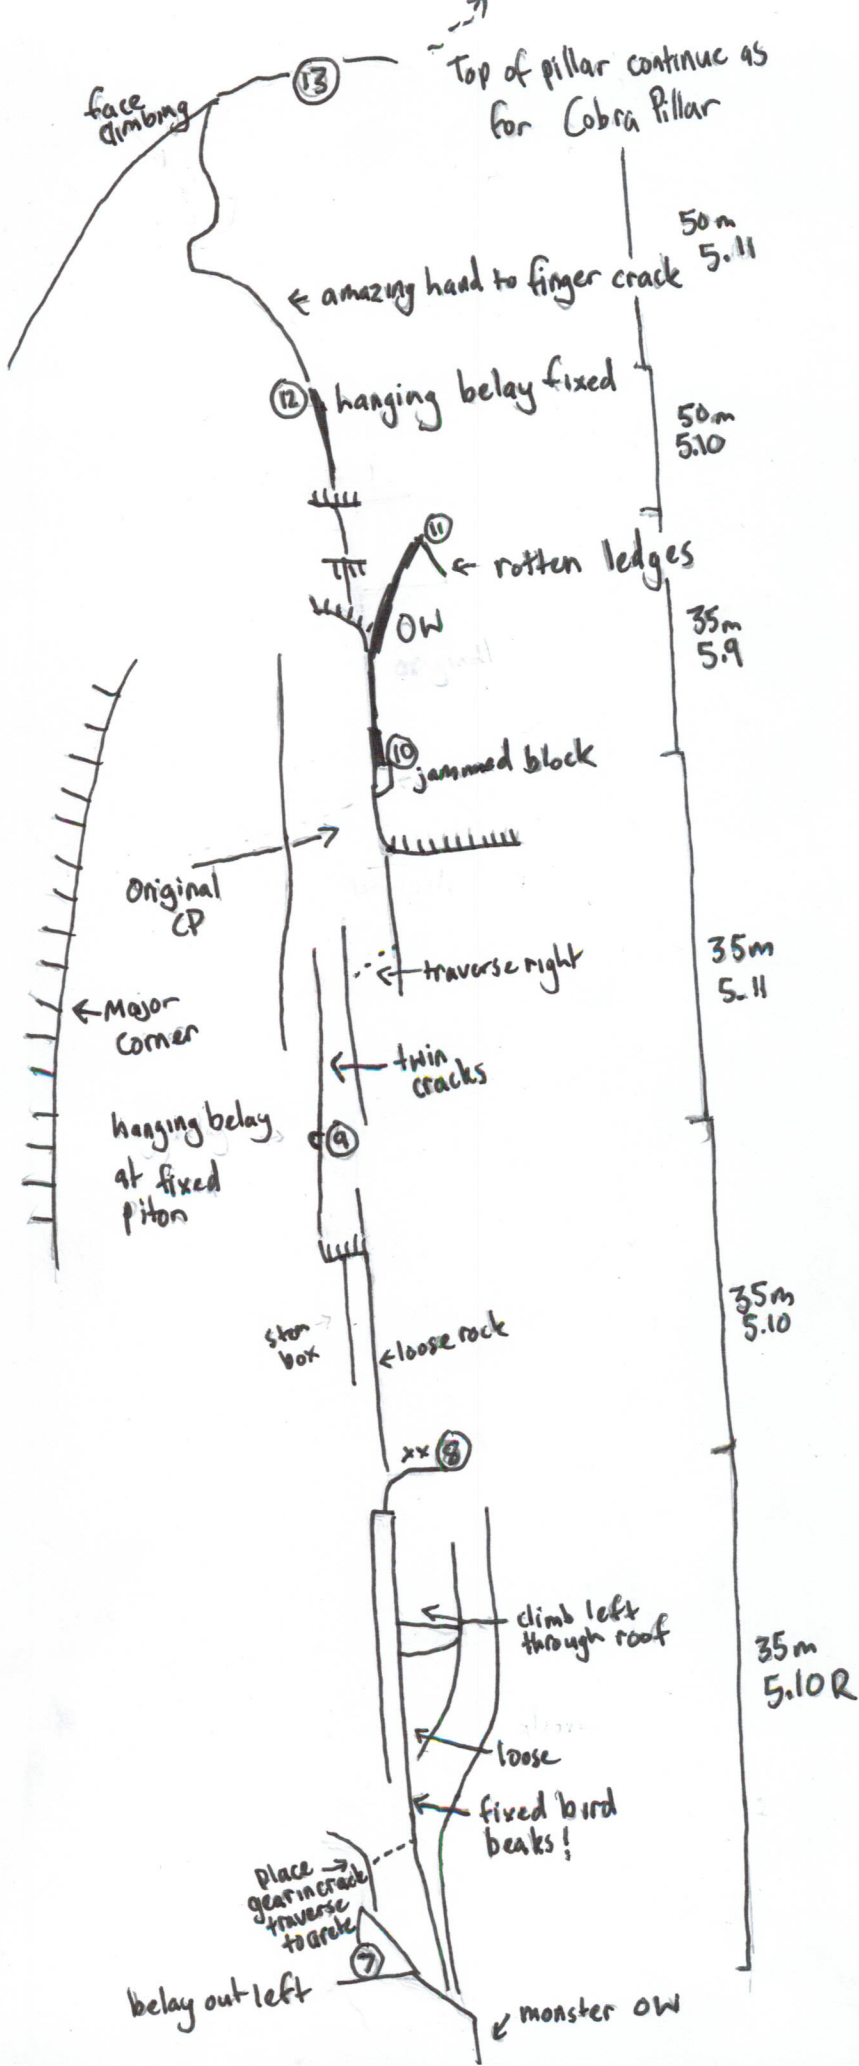 Top of pillar continue as
for Cobra Pillar
13
face
climbing
50m
5.11
amazing hand to finger crack
12
hanging belay fixed
50m
5.10
11
rotten ledges
OW
35m
5.9
10
jammed block
Original
CP
traverse right
35m
5.11
Major
Corner
twin
cracks
hanging belay
9
at fixed
piton
35m
5.10
stem
box
loose rock
xx 8
climb left
through roof
35m
5.10R
loose
fixed bird
beaks!
place
gear in crack
traverse
to arete
7
belay out left
monster OW